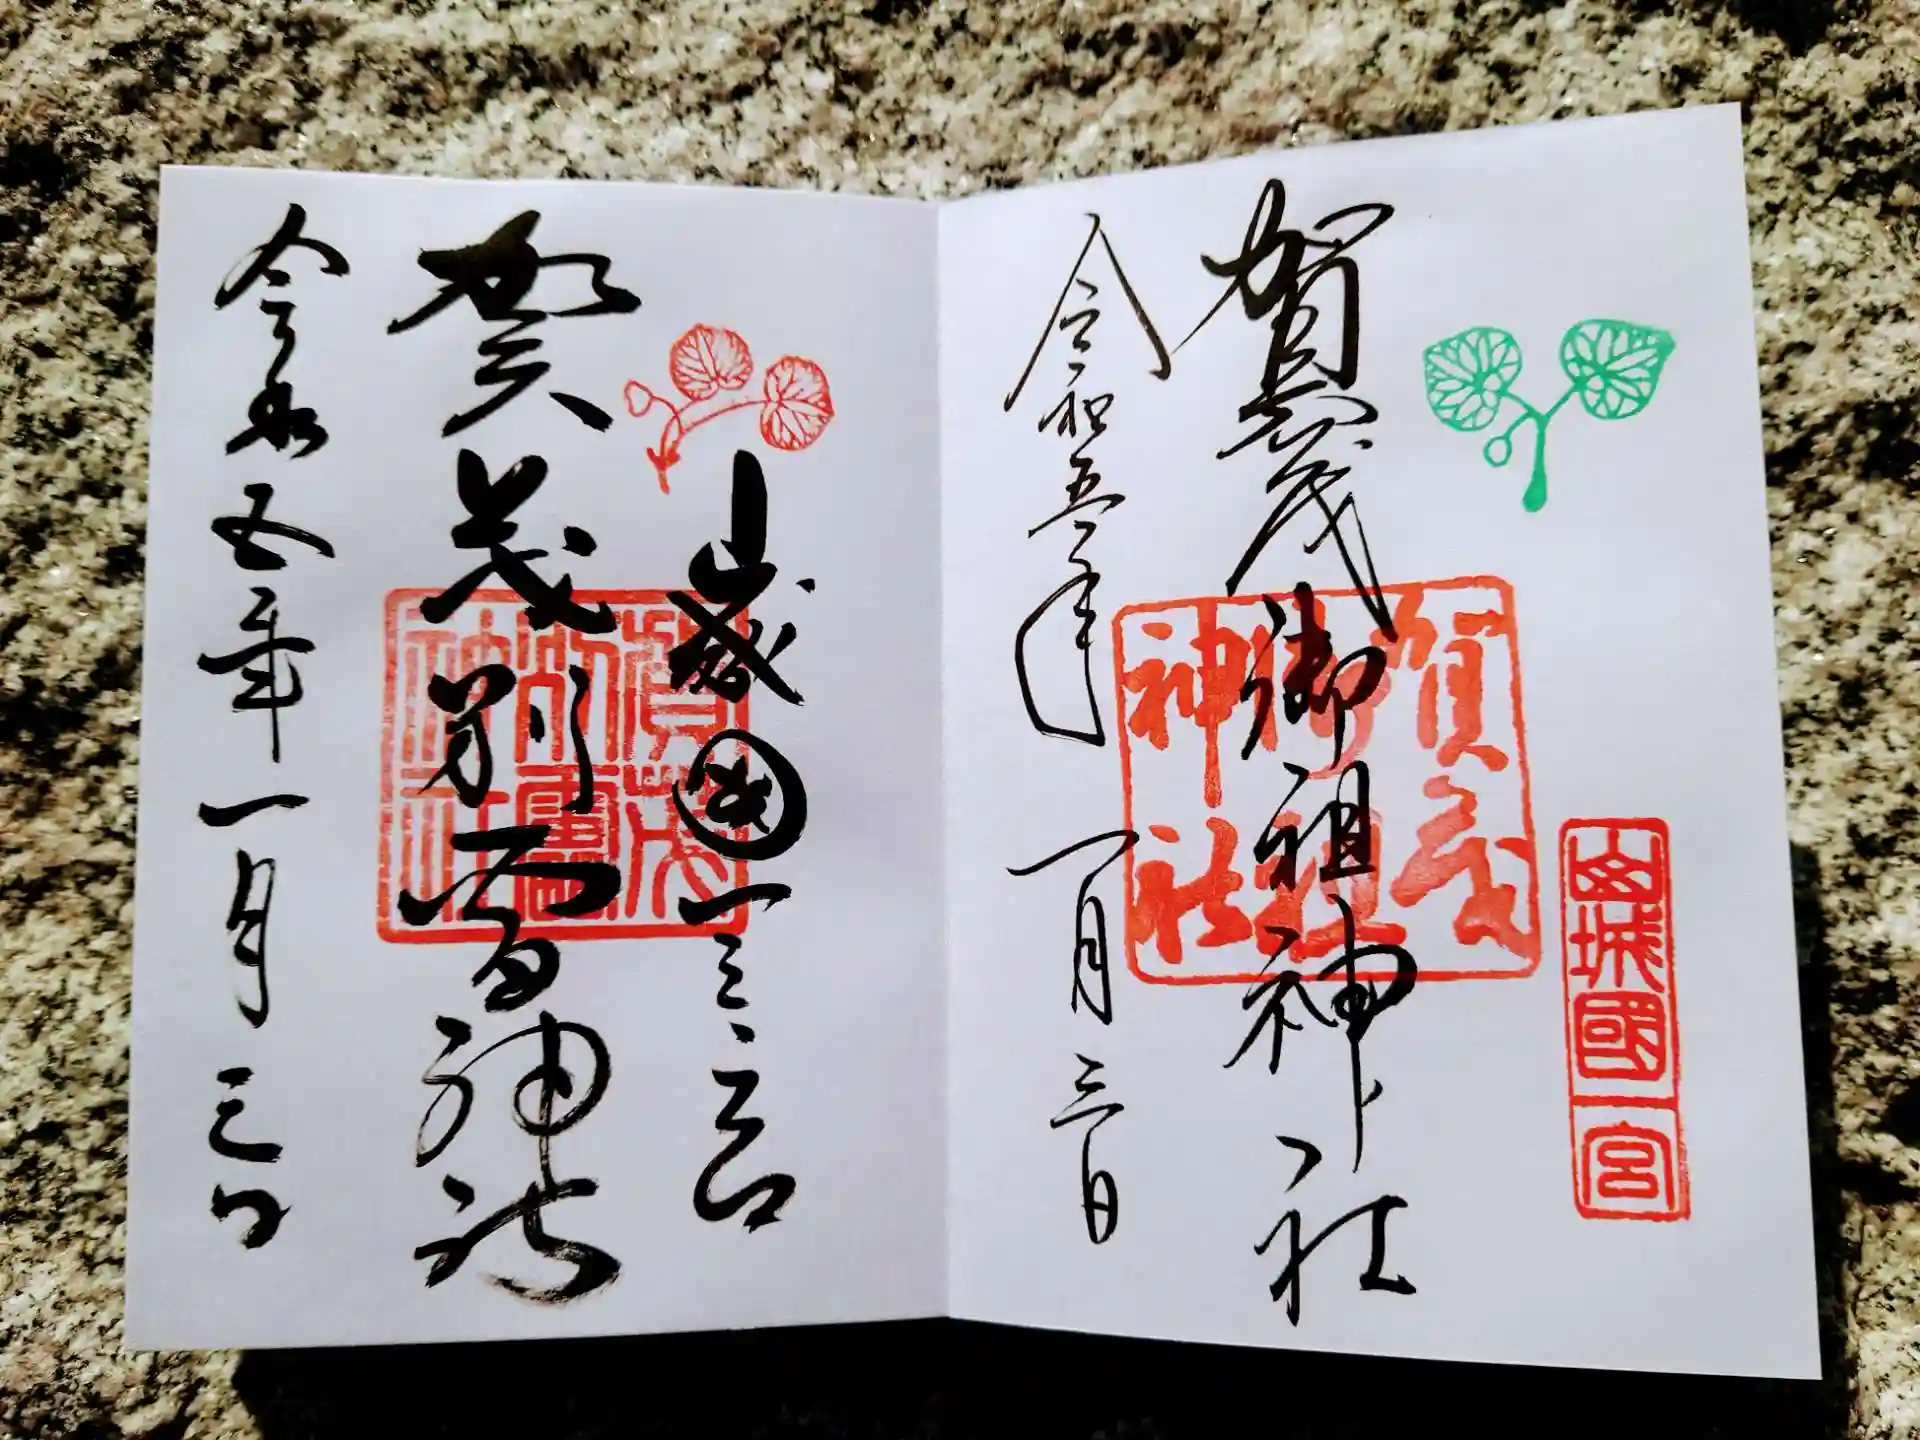 山城國一宮
賀茂御祖神社
賀茂
御祖
神社
令和五年
一月三日
山城國一之宮
賀茂別雷神社
賀茂
別雷
神社
令和五年一月三日